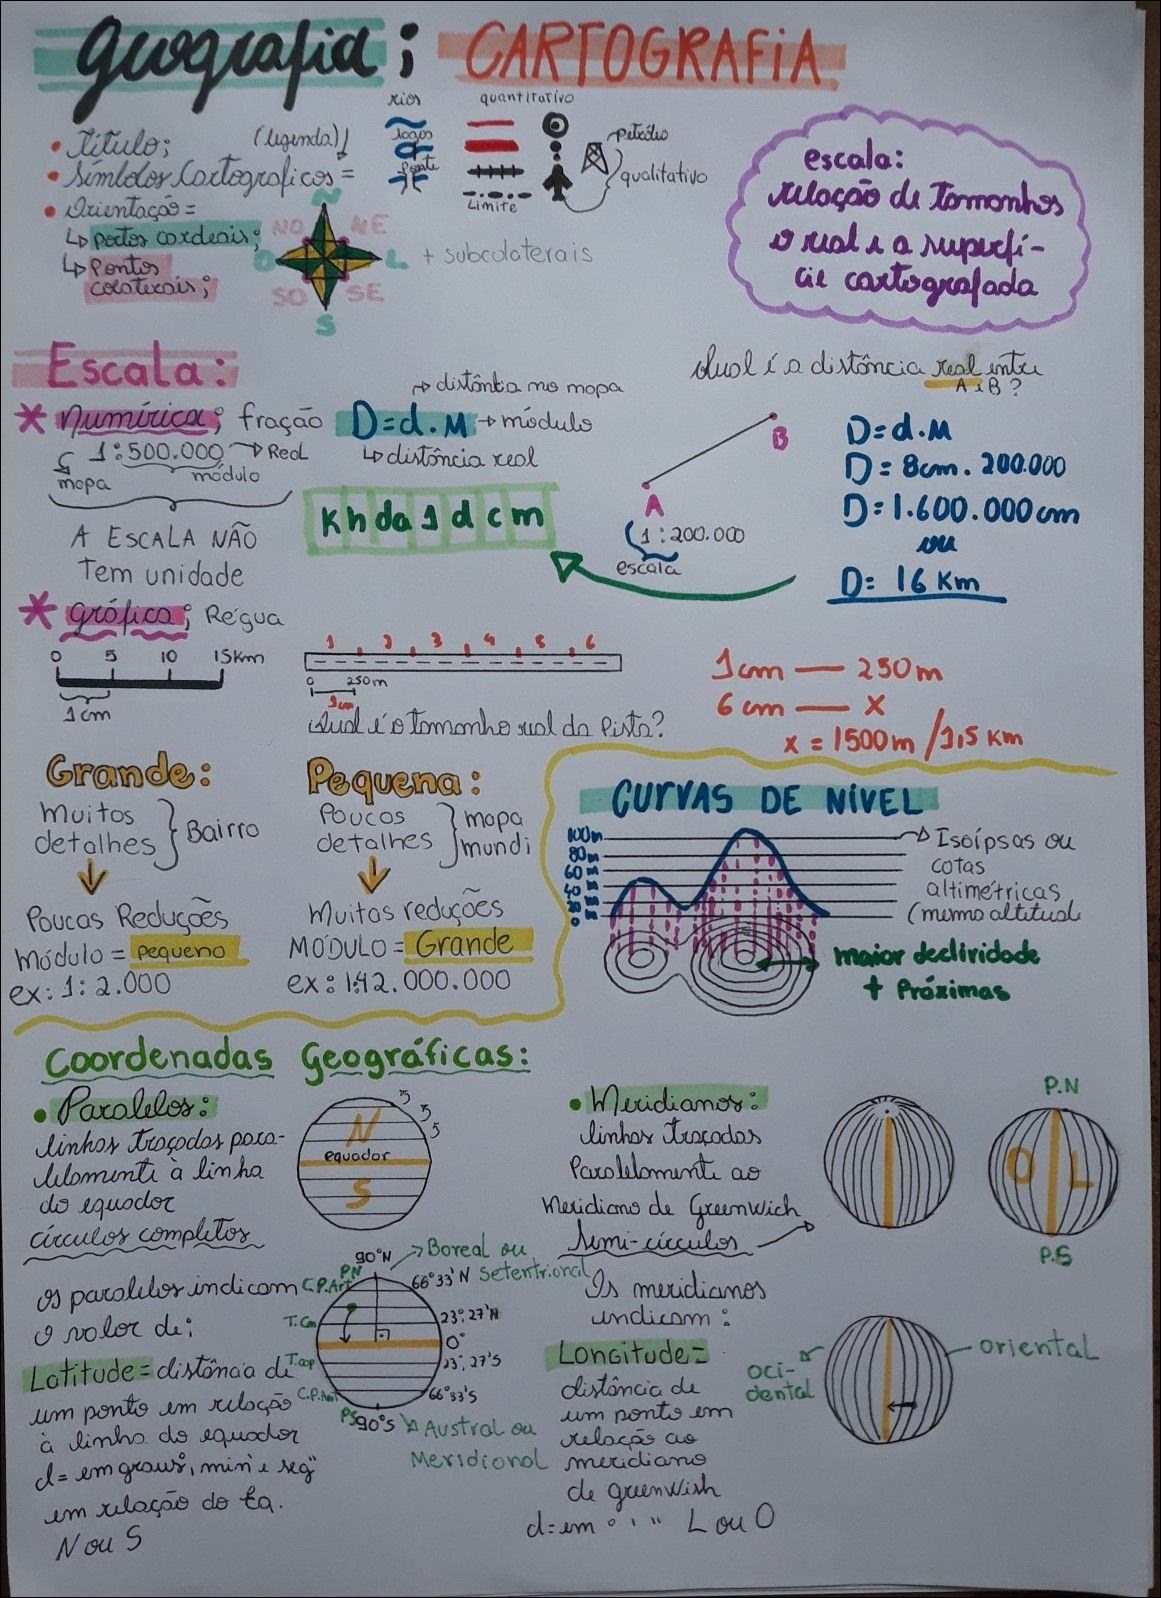 Geografia; CARTOGRAFIA
• Título;
(legenda)
• Símbolos Cartograficos =
• Orientação =
↳ pontos cardeais;
↳ Pontos
colaterais;
N
NO NE
O L
SO SE
S
+ subcolaterais
rios
lagos
ponte
quantitativo
Limite
petróleo
qualitativo
escala:
relação de tamanhos
o real e a superfí-
cie cartografada
Escala:
* numérica; fração
1:500.000 → Real
mapa módulo
A ESCALA NÃO
Tem unidade
→ distância no mapa
D=d.M → módulo
↳ distância real
K h da 1 d c m
Qual é a distância real entre
A e B?
B
A
1:200.000
escala
D=d.M
D=8cm.200.000
D=1.600.000cm
ou
D= 16 Km
* gráfica; Régua
0 5 10 15Km
1cm
1 2 3 4 5 6
0 250m
1cm
Qual é o tamanho real da Pista?
1cm — 250m
6cm — X
X = 1500m /1,5 Km
Grande:
Muitos
detalhes
Bairro
Poucas Reduções
módulo = pequeno
ex: 1:2.000
Pequena:
Poucos
detalhes
mapa
mundi
Muitas reduções
MÓDULO = Grande
ex: 1:42.000.000
CURVAS DE NÍVEL
100m
80m
60
40
20
0
Isoípsas ou
cotas
altimétricas
(mesma altitude
maior declividade
+ Próximas
Coordenadas Geográficas:
• Paralelos:
linhas traçadas para-
lelamente à linha
do equador
círculos completos
N
equador
S
os paralelos indicam
o valor de:
Latitude = distância de
um ponto em relação
à linha do equador
d= em graus°, min' e seg"
em relação do
N ou S
90°N
→ Boreal ou
Setentrional
P.N
C.P.Art
66°33'N
T.Can
23°27'N
0°
T.cap
23°27'S
C.P.Ant
66°33'S
PS
90°S
↳ Austral ou
Meridional
• Meridianos:
linhas Traçadas
Paralelamente ao
Meridiano de Greenwich
Semi-círculos
P.N
O L
P.S
Os meridianos
indicam:
Longitude =
distância de
um ponto em
relação ao
meridiano
de greenwish
d=em ° ' " L ou O
oci-
dental
oriental